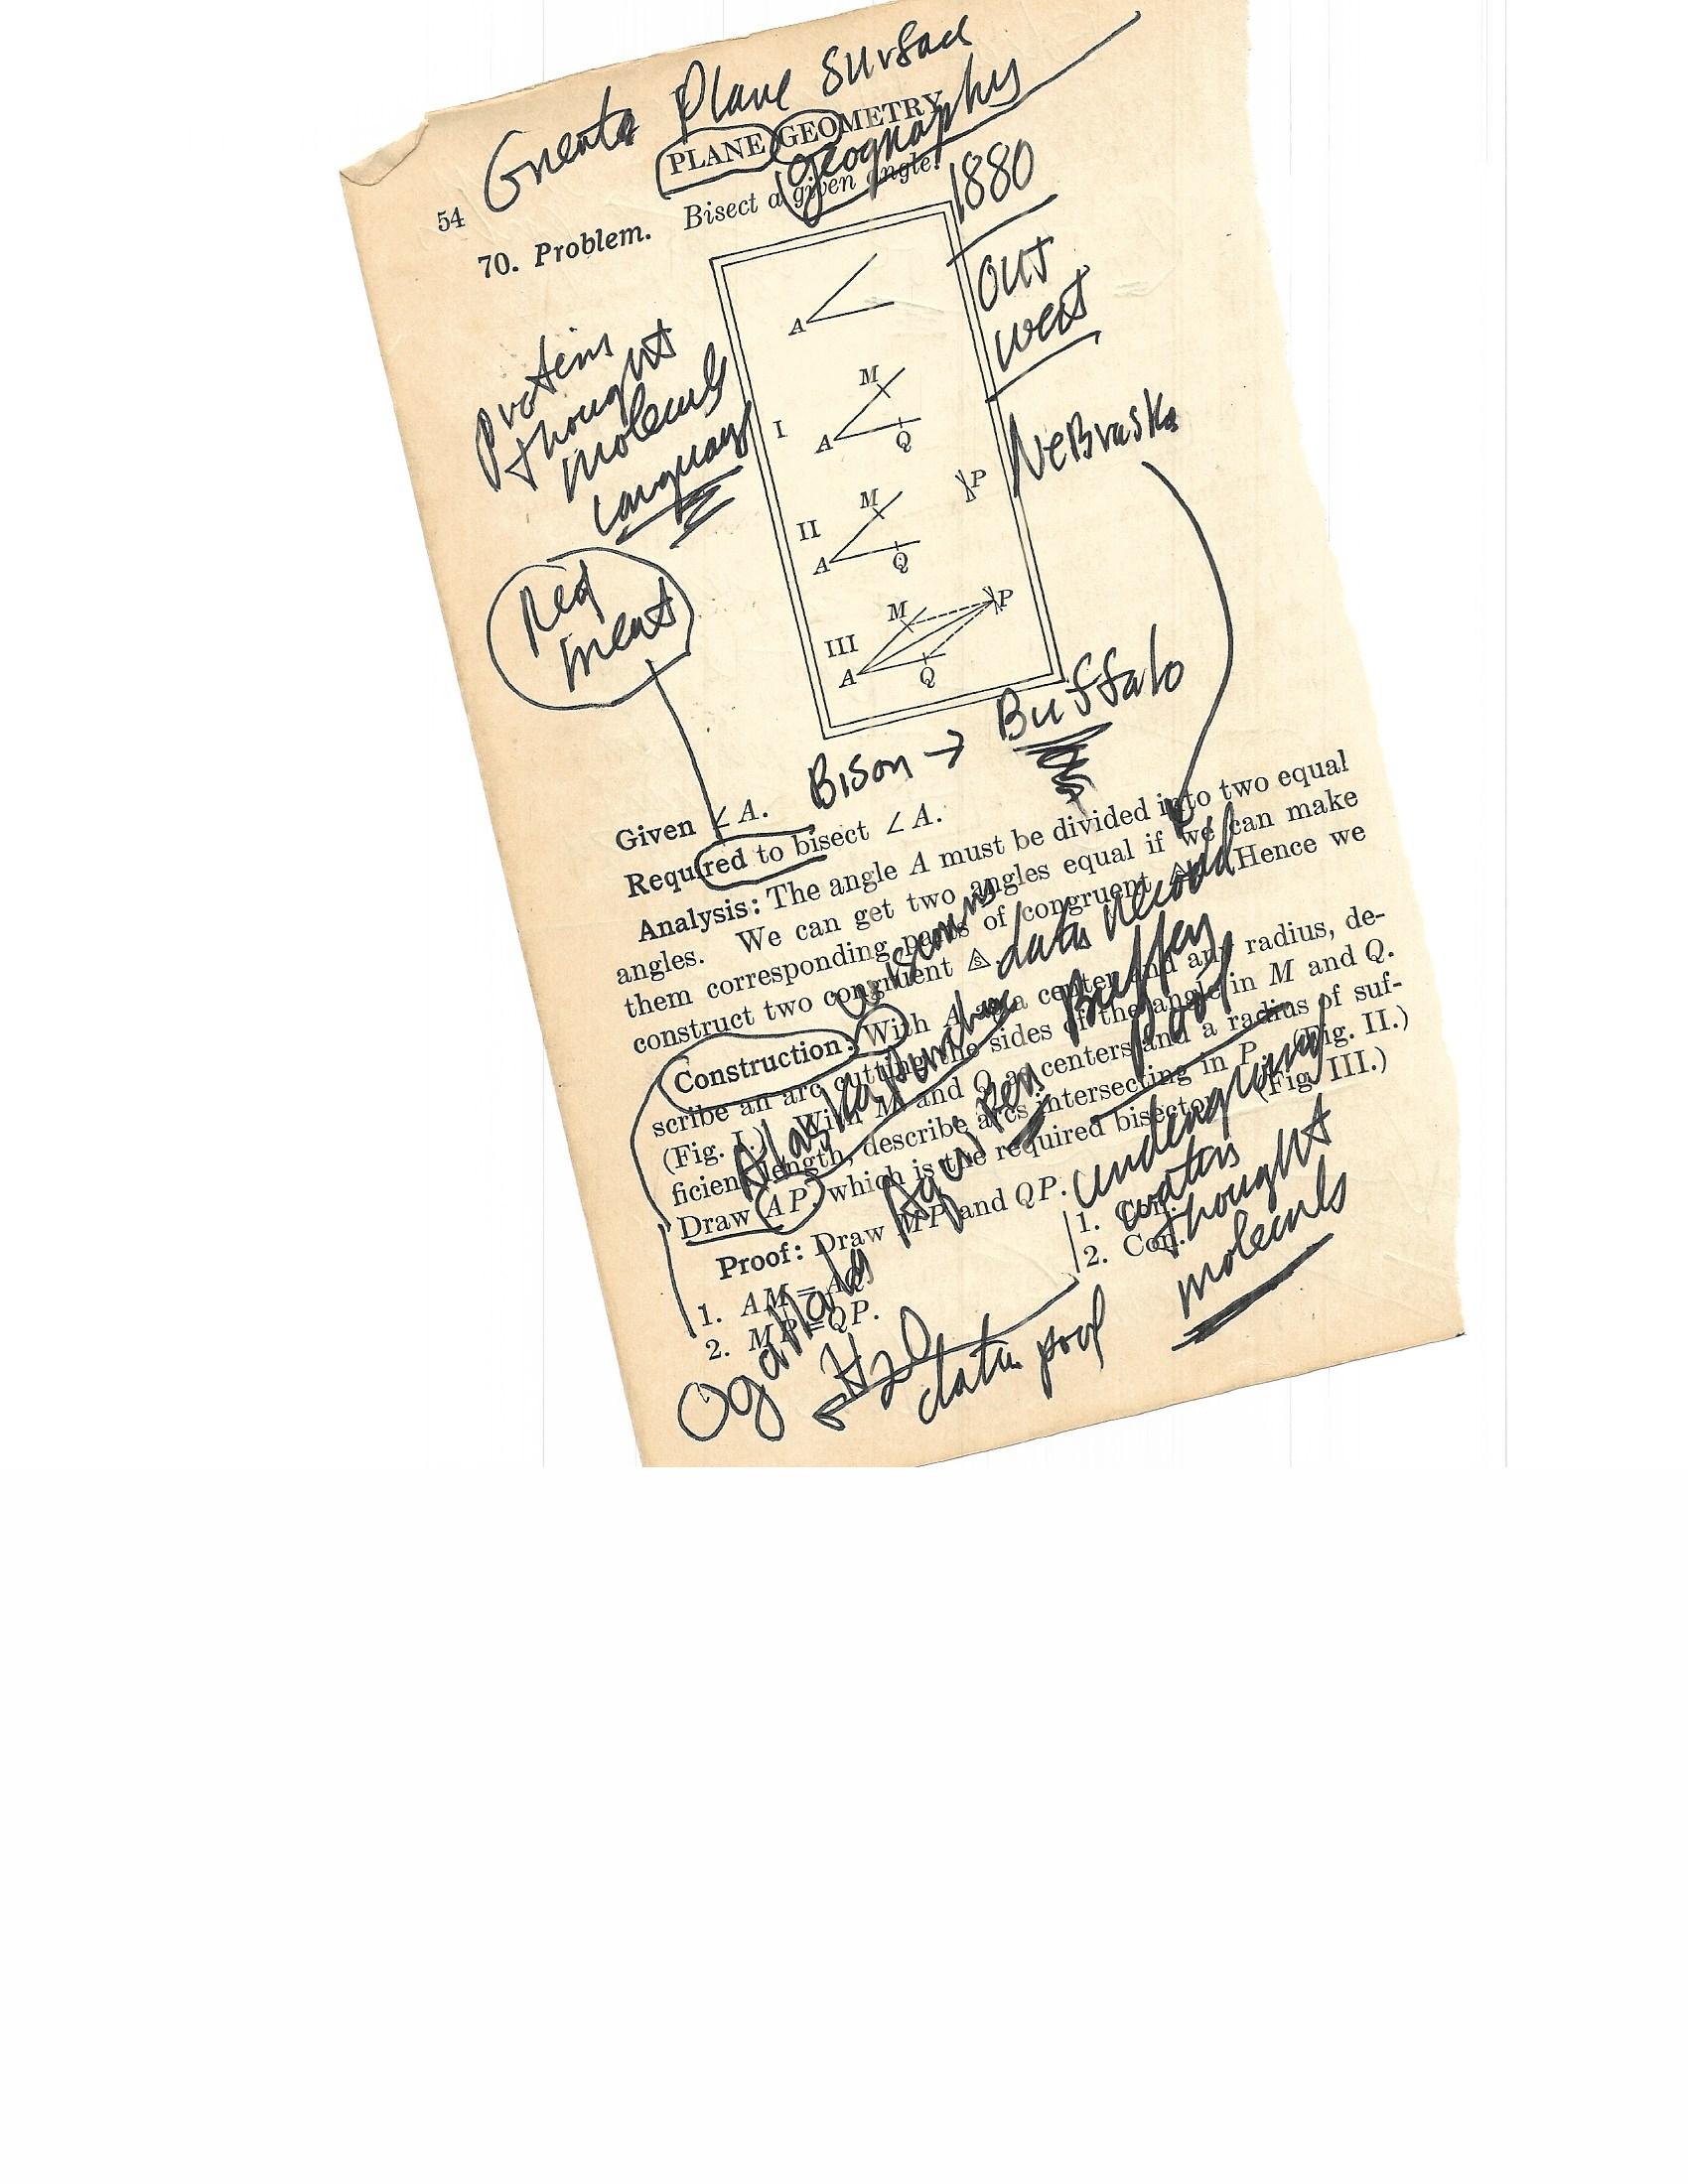 Greata Plane Surface
PLANE GEOMETRY
geography
54
70. Problem. Bisect a given angle.
1880
OUT
West
Nebraska
Proteins
thought
molecule
language
Red
meat
A
M
I
A
Q
P
M
II
A
Q
M
P
III
A
Q
Bison → Buffalo
Given ∠A.
Required to bisect ∠A.
Analysis: The angle A must be divided into two equal
angles. We can get two angles equal if we can make
them corresponding parts of congruent △. Hence we
construct two congruent △.
data record
Construction: With A as a center and any radius, de-
scribe an arc cutting the sides of the angle in M and Q.
(Fig. I.) With M and Q as centers and a radius of suf-
ficient length, describe arcs intersecting in P. (Fig. II.)
Draw AP, which is the required bisector. (Fig. III.)
Alaska purchase
underground
waters
thought
molecules
Proof: Draw MP and QP.
1. AM = AQ.
2. MP = QP.
1. Con.
2. Con.
Ogallala
H2O
data pool